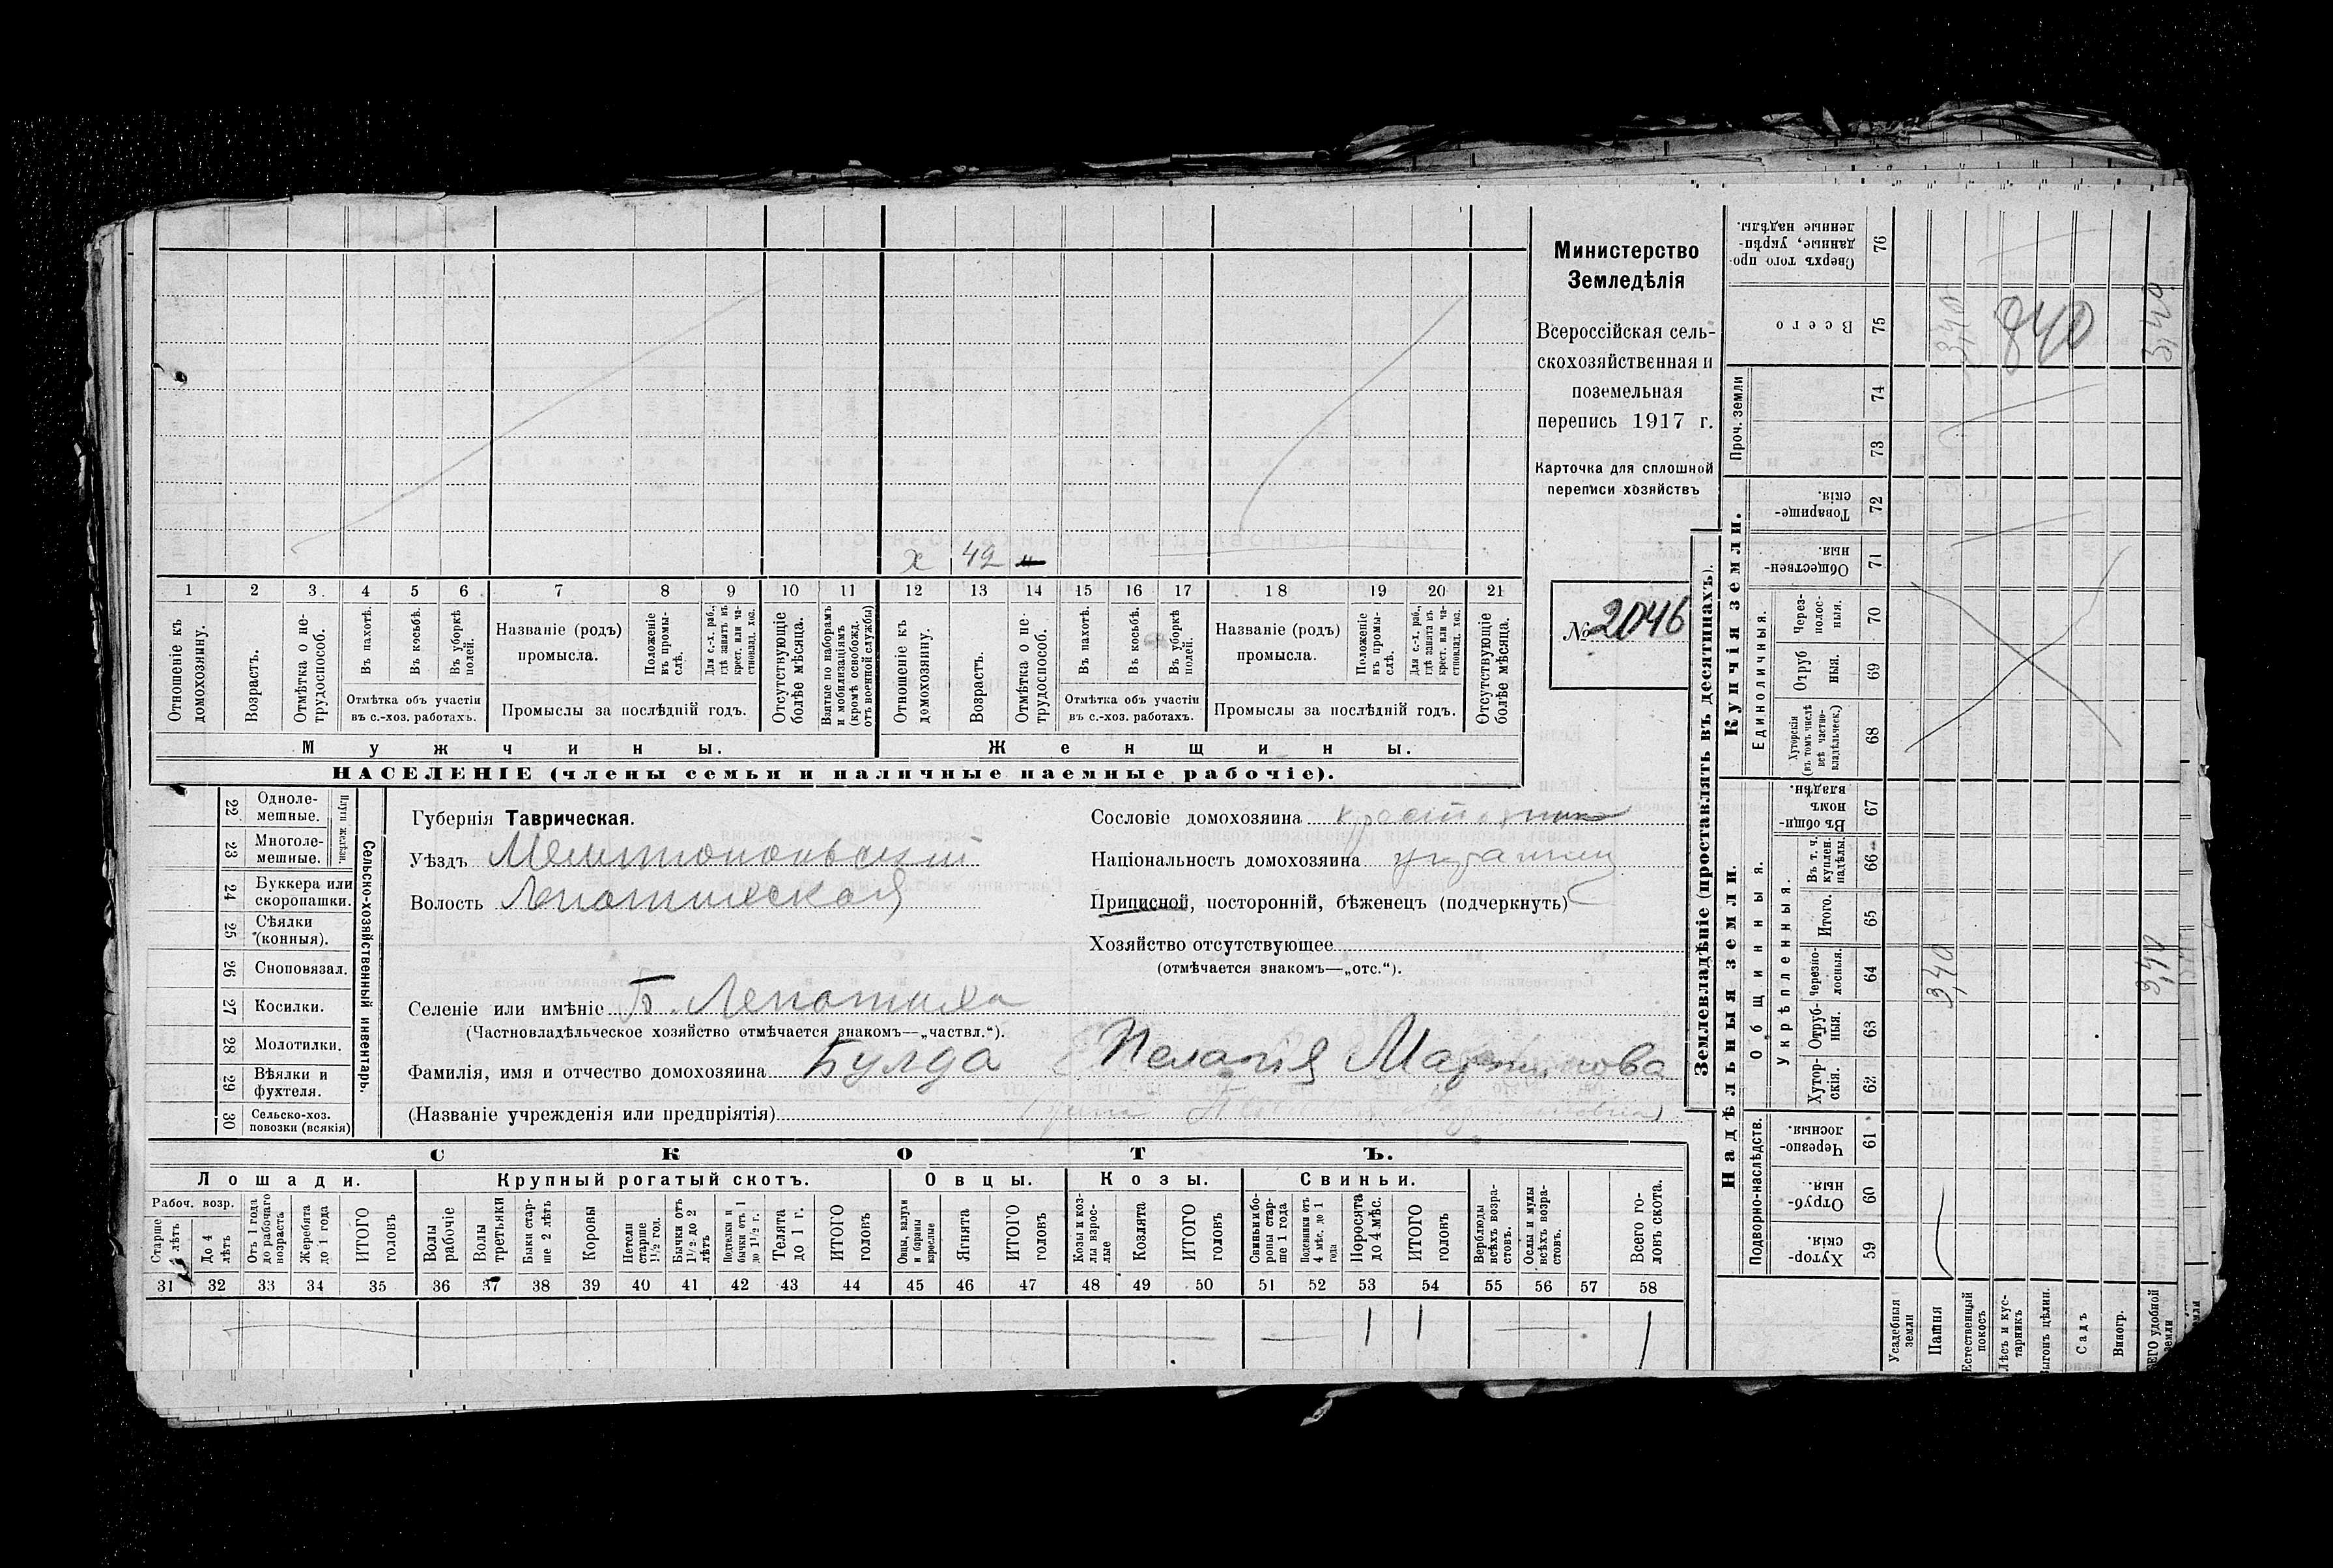 Министерство
Земледѣлія
Всероссійская сель-
скохозяйственная и
поземельная
перепись 1917 г.
Карточка для сплошной
переписи хозяйствъ
№ 2046
х 42
1 2 3 4 5 6 7 8 9 10 11 12 13 14 15 16 17 18 19 20 21
Отношеніе къ домохозяину.
Возрастъ.
Отмѣтка о не-трудоспособ.
Въ пахотѣ.
Въ косьбѣ.
Въ уборкѣ полей.
Отмѣтка объ участіи
въ с.-хоз. работахъ.
Названіе (родъ)
промысла.
Положеніе въ промы-слѣ.
Для с.-х. раб., гдѣ занятъ въ крест. или ча-стновлад. хоз.
Промыслы за послѣдній годъ.
Отсутствующіе болѣе мѣсяца.
Взятые по наборамъ и мобилизаціямъ (кромѣ освобожд. отъ военной службы)
Отношеніе къ домохозяину.
Возрастъ.
Отмѣтка о не-трудоспособ.
Въ пахотѣ.
Въ косьбѣ.
Въ уборкѣ полей.
Отмѣтка объ участіи
въ с.-хоз. работахъ.
Названіе (родъ)
промысла.
Положеніе въ промы-слѣ.
Для с.-х. раб., гдѣ занята въ крест. или ча-стновлад. хоз.
Промыслы за послѣдній годъ.
Отсутствующіе болѣе мѣсяца.
Мужчины. Женщины.
НАСЕЛЕНІЕ (члены семьи и наличные наемные рабочіе).
Сельско-хозяйственный инвентарь.
Плуги желѣзн.
22 Одноле-мешные.
23 Многоле-мешные.
24 Буккера или скоропашки.
25 Сѣялки (конныя).
26 Сноповязал.
27 Косилки.
28 Молотилки.
29 Вѣялки и фухтеля.
30 Сельско-хоз. повозки (всякія)
Губернія Таврическая.
Уѣздъ Мелитопольскій
Волость Лепатихская
Сословіе домохозяина
Національность домохозяина
Приписной, посторонній, бѣженецъ (подчеркнуть)
Хозяйство отсутствующее
(отмѣчается знакомъ—„отс.“).
Селеніе или имѣніе Б. Лепатиха
(Частновладѣльческое хозяйство отмѣчается знакомъ—„частвл.“).
Фамилія, имя и отчество домохозяина Булда Пелагія
(Названіе учрежденія или предпріятія)
СКОТЪ.
Лошади. Крупный рогатый скотъ. Овцы. Козы. Свиньи.
Рабоч. возр.
Старше 4 лѣтъ
До 4 лѣтъ
Отъ 1 года до рабочаго возраста
Жеребята до 1 года
ИТОГО головъ
Волы рабочіе
Волы третьяки
Быки стар-ше 2 лѣтъ
Коровы
Нетели старше 1½ гол.
Бычки отъ 1½ до 2 лѣтъ
Подтелки и бычки отъ 1 до 1½ г.
Телята до 1 г.
ИТОГО головъ
Овцы, валухи и бараны взрослые
Ягнята
ИТОГО головъ
Козы и коз-лы взрос-лые
Козлята
ИТОГО головъ
Свиньи и бо-ровы стар-ше 1 года
Подсвинки отъ 4 мѣс. до 1 года
Поросята до 4 мѣс.
ИТОГО головъ
Верблюды всѣхъ возра-стовъ.
Ослы и мулы всѣхъ возра-стовъ.
Всего го-ловъ скота.
31 32 33 34 35 36 37 38 39 40 41 42 43 44 45 46 47 48 49 50 51 52 53 54 55 56 57 58
1 1 1
Землевладѣніе (проставлять въ десятинахъ).
Купчія земли.
Надѣльныя земли.
Проч. земли
Единоличныя.
Общинныя.
Укрѣпленныя.
Подворно-наслѣдств.
Сверхъ того про-данные, укрѣп-ленные надѣлы. 76
Всего 75
74
73
Товарище-скія. 72
Обществен-ныя 71
Через-полос-ныя. 70
Отруб ныя. 69
Хуторскія (въ томъ числѣ всѣ частно-владѣльческ.) 68
Въ общи-номъ владѣн. 67
Въ т. ч. куплен. надѣлы. 66
Итого. 65
Черезпо-лосныя. 64
Отруб-ныя. 63
Хутор-скія. 62
Черезпо-лосныя. 61
Отруб-ныя. 60
Хутор-скія. 59
3,40 840 3,40
3,40 3,40
Усадебныя земли
Пашня
Естественный покосъ
Лѣсъ и кус-тарникъ
Садъ
Виногр.